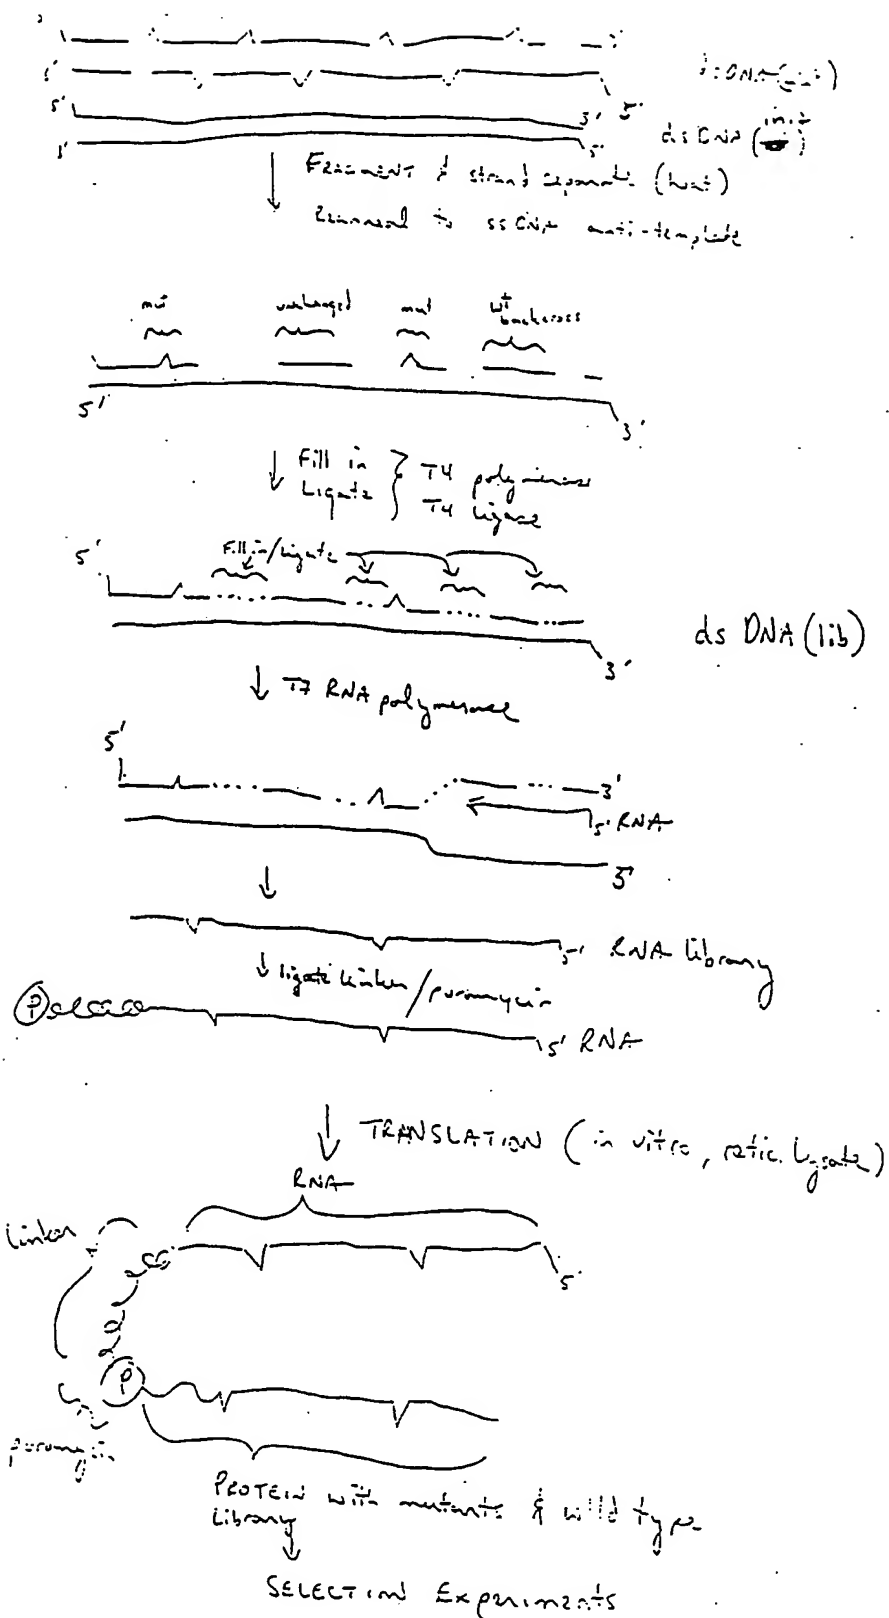 5'
5'
3'
5'
3'
5'
ds DNA (init)
FRAGMENT & strand separati (heat)
Reanneal to ssDNA anti-template
mut unchanged mut wt backcross
5'
3'
Fill in } T4 polymerase
Ligate } T4 ligase
5'
Fill in/Ligate
ds DNA (lib)
3'
T7 RNA polymerase
5'
3'
5' RNA
3'
5' RNA Library
ligate linker/puromycin
P
5' RNA
TRANSLATION (in vitro, retic. lysate)
RNA
linker
5'
P
puromycin
PROTEIN with mutants & wild type
Library
SELECTION Experiments